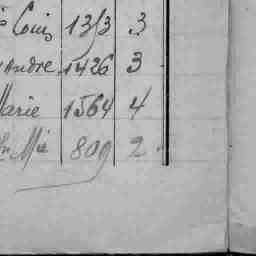 Louis 1353 3
Andre 1426 3
Marie 1564 4
Mie 809 2